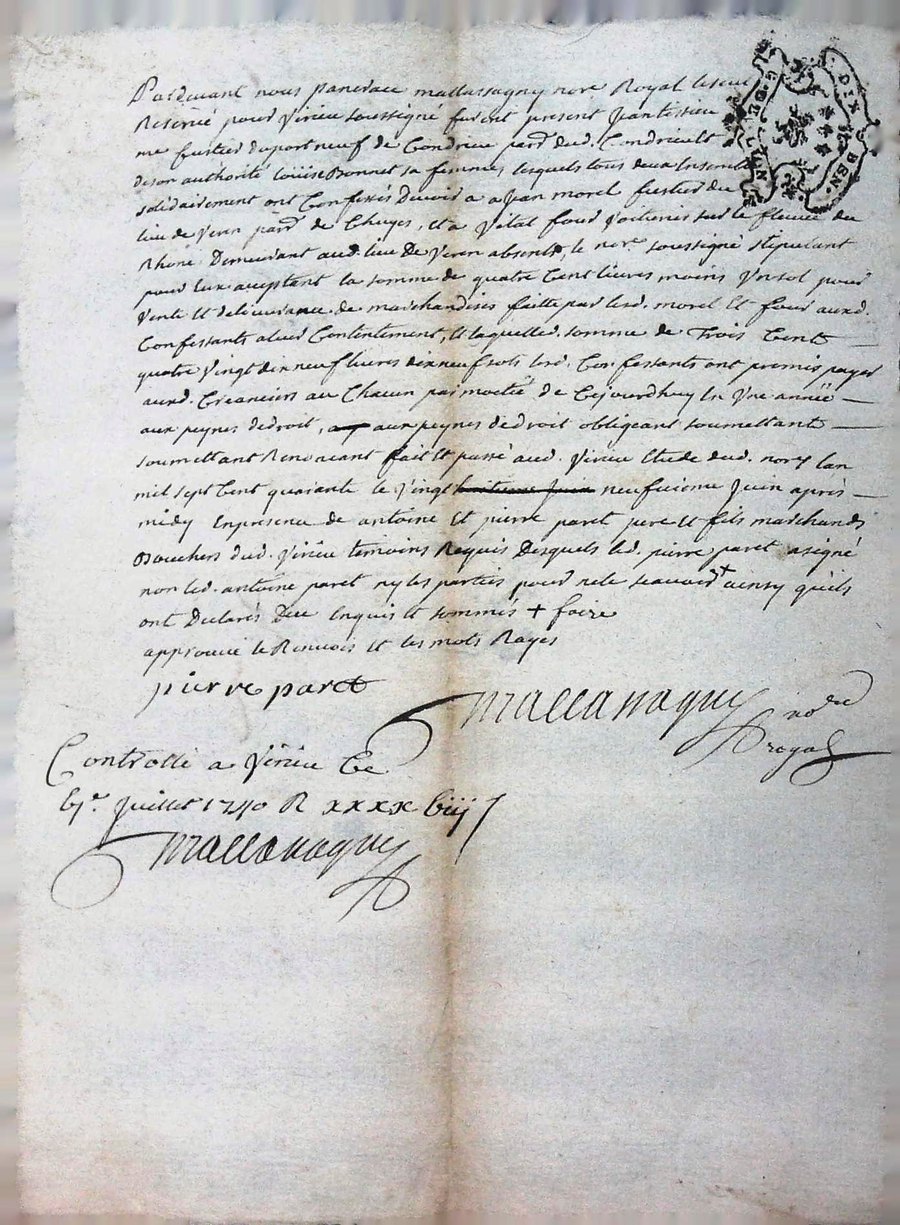 Pardevant nous panerace mallassagny nore Royal
Reservé pour virieu soussigné furent present
me fustier du port neuf de Condrieu parr. dud. Condrieu Et
de son authorité Louise Bonnet sa femme, lesquels tous deux Ensemble
solidairement ont Confessés Devoir a a Jean morel fustier du
lieu de veren parr. de Chuyes, Et a vital four voiturier sur le fleuve du
Rhone Demeurant aud. lieu De veren absents, le nore. soussigné stipulant
pour Eux acceptant la somme de quatre Cent livres moins Un sol pour
vente Et delivrance de marchandises faitte par lesd. morel Et four auxd.
Confessants a leur Contentement, Et laquelle d. somme de Trois Cent
quatre vingt dix neuf livres dix neuf sols lesd. Confessants ont promis payer
auxd. Creanciers au Chacun par moctié de Cejourdhuy En Une année
aux peynes de droit, aux peynes de droit obligeant soumettant
soumettant Renonçant fait Et passé aud. virieu Etude dud. nore lan
mil sept Cent quarante le vingt huitieme Juin neufvieme Juin après
midy En presence de antoine Et pierre paret pere Et fils marchands
Bouchers dud. virieu temoins Requis Desquels led. pierre paret a signé
non led. antoine paret ny les parties pour ne le scavoir + ainsy quils
ont Declarés Deu Enquis Et sommés + faire
approuvé le Renvois Et les mots Rayes
pierre paret
Mallassagny
royal
Controllé a virieu Le
Juillet 1740 R xxxx viij s
Mallassagny
G. DE LYON
DIX